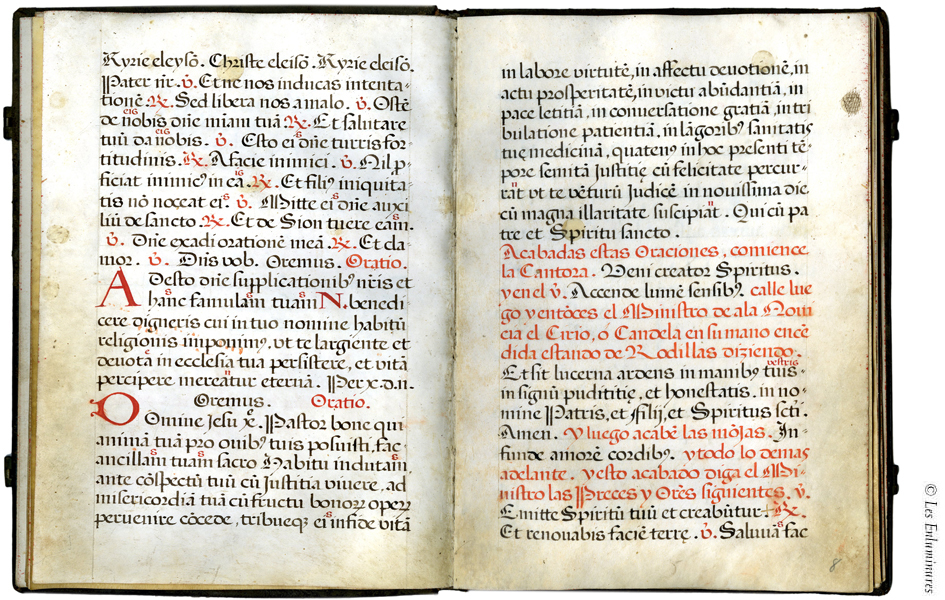 Kyrie eleysō. Christe eleisō. Kyrie eleisō.
Pater nr̄. ꝟ. Et ne nos inducas intenta-
tionē ℟. Sed libera nos a malo. ꝟ. Ostē
de nobis dn̄e miām tuā ℟. Et salutare
eis
tuū da nobis. ꝟ. Esto ei dn̄e turris for-
eis s
titudinis. ℟. A facie inimici. ꝟ. Nil ꝓ-
ficiat inimicꝰ in eā. ℟. Et filiꝰ iniquita-
is
tis nō noceat ei. ꝟ. Mitte ei dn̄e auxi
s s
liū de sancto. ℟. Et de Sion tuere eam.
s
ꝟ. Dn̄e exadi orationē meā ℟. Et cla-
mor. ꝟ. Dn̄s vob. Oremus. Oratio.
Adesto dn̄e supplicationibꝰ nr̄is et
hanc famulam tuam N. benedi-
s s s
cere digneris cui in tuo nomine habitū
religionis imponimꝰ. ut te largiente et
devota in ecclesia tua persistere, et vitā
percipere mereatur eternā. Per x. d. n.
Oremus. Oratio.
Domine Jesu xe. Pastor bone qui
animā tuā pro ovibꝰ tuis posuisti, fac
ancillam tuam sacro Habitu indutam,
ante cōspectū tuū cū Justitia vivere, ad
misericordiā tuā cū fructu bonoꝝ opeꝝ
pervenire cōcede, tribueqꝫ ei in fide vitā
s
in labore virtutē, in affectu devotionē, in
actu prosperitatē, in victu abūdantiā, in
pace letitiā, in conversatione gratiā, in tri
bulatione patientiā, in lāgoribꝰ sanitatis
tuę medicinā, quatenꝰ in hoc presenti tē-
pore semitā Justitię cū felicitate percur-
rāt ut te vēturū Judicē in novissima die
cū magna illaritate suscipiat. Qui cū pa
tre et Spiritu sancto.
Acabadas estas Oraciones, comience
la Cantora. Veni creator Spiritus.
y en el ꝟ. Accende lumē sensibꝰ. calle lue
go y entōces el Ministro de a la Novi
cia el Cirio, ó Candela en su mano encē
dida estando de Rodillas diziendo.
vestris
Et sit lucerna ardens in manibꝰ tuis
in signū pudititię, et honestatis. in no-
mine Patris, et filij, et Spiritus scti.
Amen. Y luego acabē las mōjas. In-
funde amorē cordibꝰ. y todo lo demas
adelante. y esto acabado diga el Mi-
nistro las Preces y Orēs siguientes. ꝟ.
Emitte Spiritū tuū et creabūtur. ℟.
Et renovabis faciē terrę. ꝟ. Salvā fac
s
8
© Les Enluminures